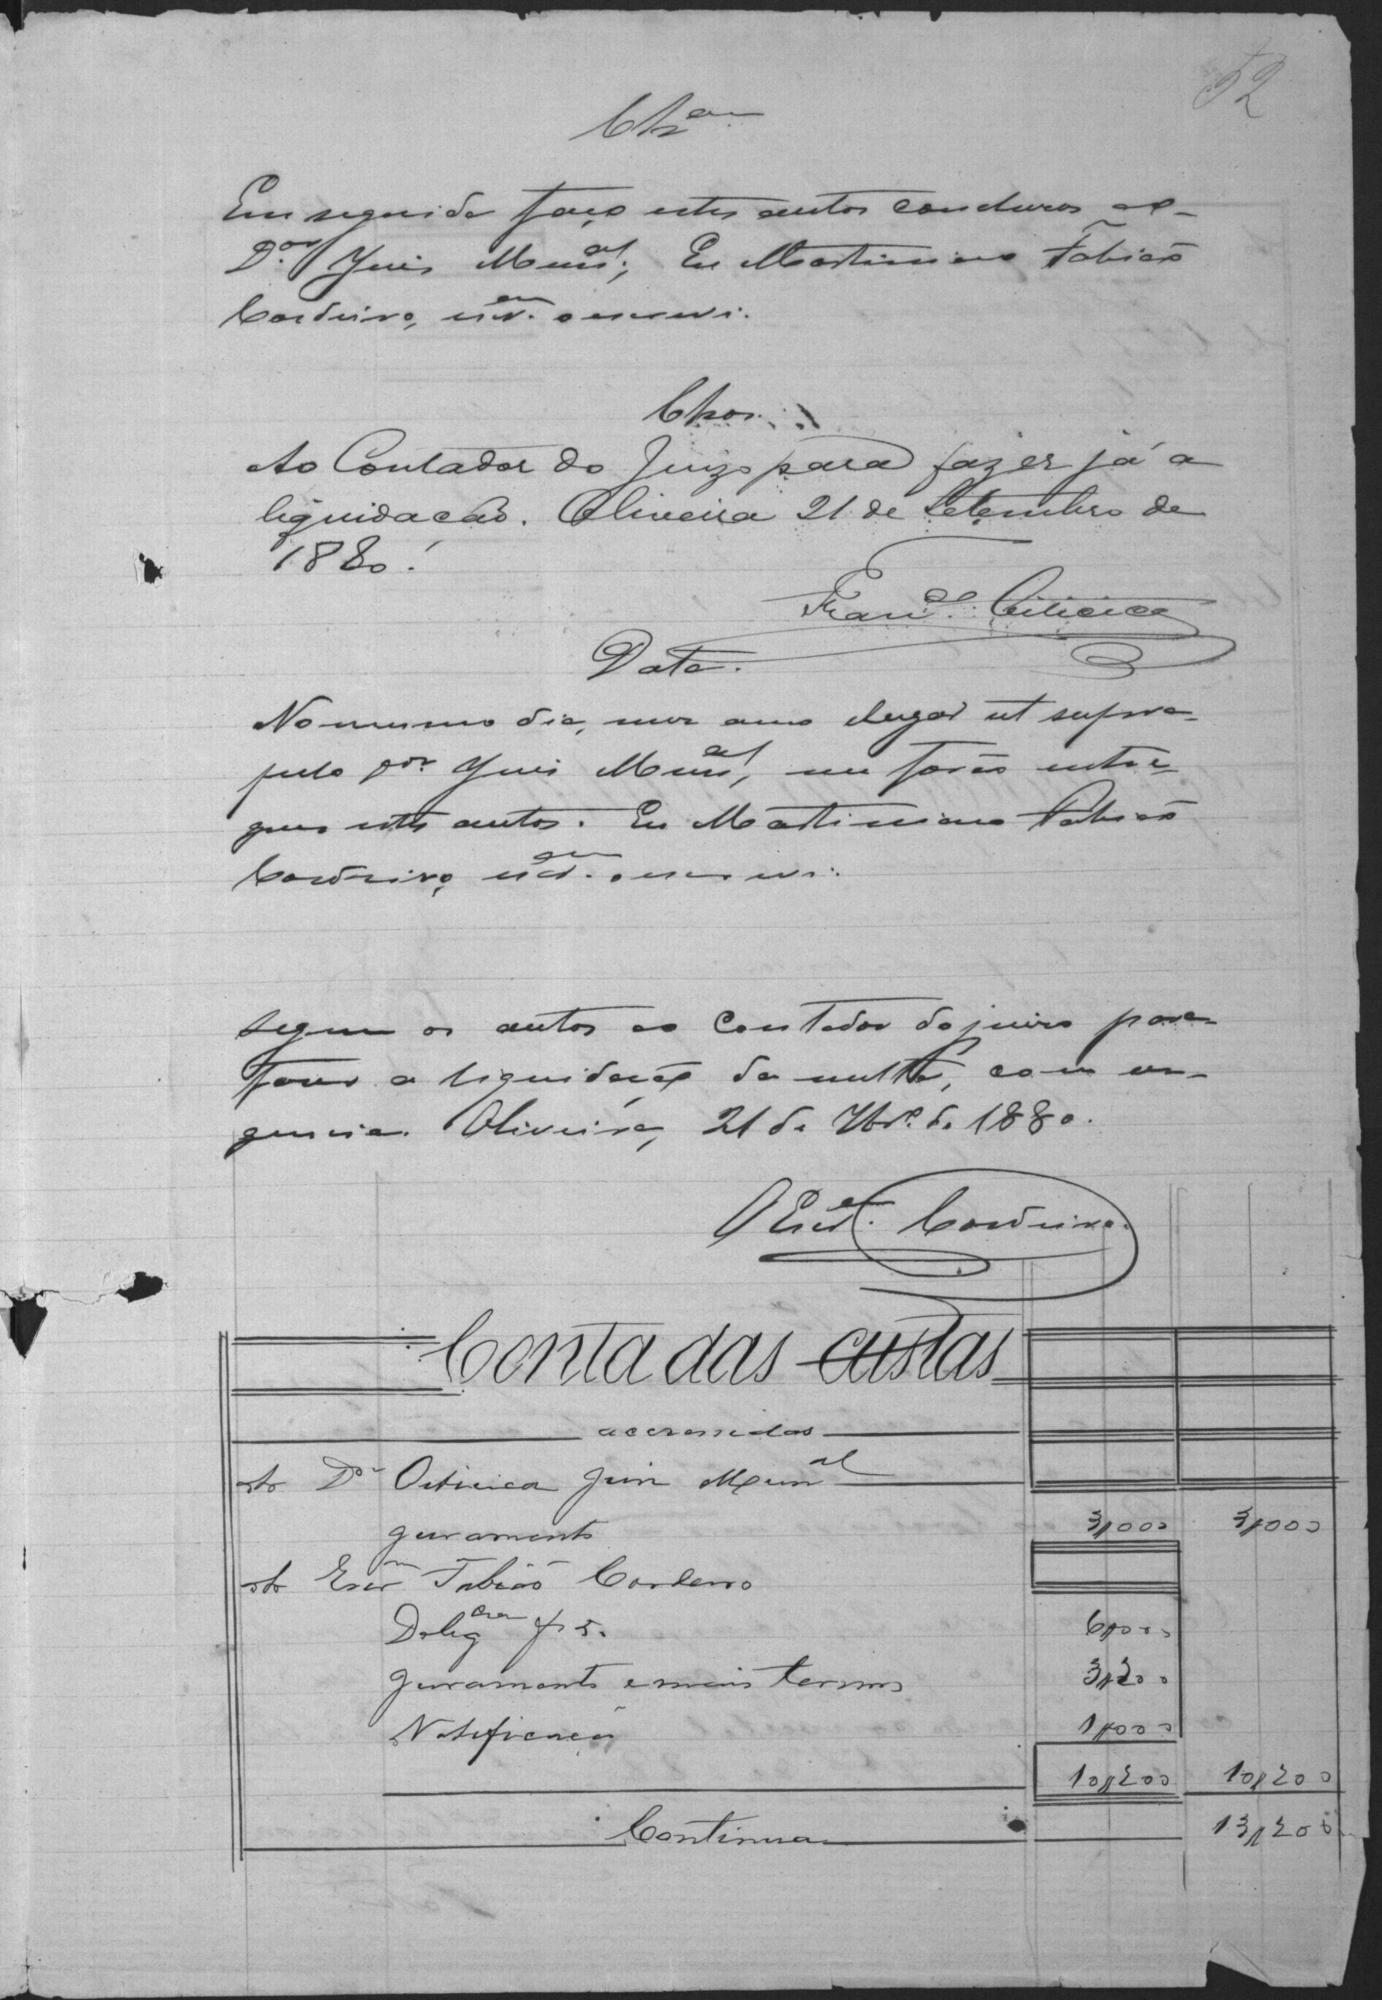 52
Clzam
Em seguida faço estes autos conclusos ao
Dor Juiz Munal; Eu Martiniano Fabião
Cordeiro, escam o escrevi.
Clzos
Ao Contador do Juizo para fazer já a
liquidação. Oliveira 21 de Setembro de
1880.
Franco
Data.
No mesmo dia, mez anno e lugar ut supra
pelo Dor Juiz Munal, me forão entre-
gues estes autos. Eu Martiniano Fabião
Cordeiro, escam o escrevi.
Seguem os autos ao Contador do juizo para
fazer a liquidação da multa, com ur-
gencia. Oliveira, 21 de 7bro de 1880.
O Escam Cordeiro.
Conta das custas
accrescidas
Ao Dr Oiticica Juiz Munal
juramento 3,000 3,000
Ao Escam Fabião Cordeiro
6,000
juramento e mais termos 3,200
Notificação 1,000
10,200 10,200
Continua 13,200